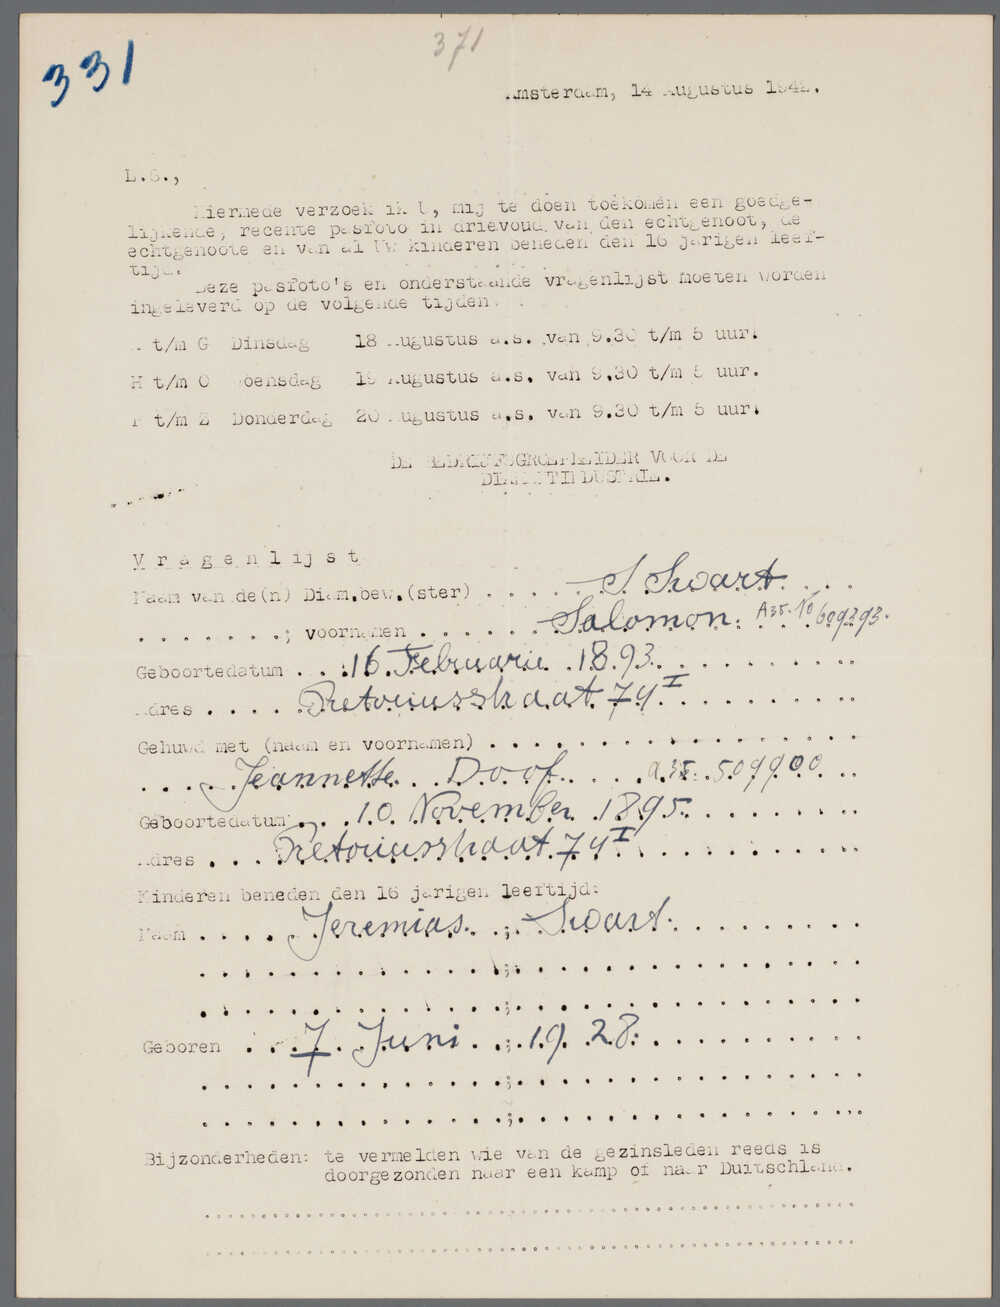 331
371
Amsterdam, 14 Augustus 1942.
L.S.,
Hiermede verzoek ik U, mij te doen toekomen een goedge-
lijkende, recente pasfoto in drievoud van den echtgenoot, de
echtgenoote en van al Uw kinderen beneden den 16 jarigen leef-
tijd.
Deze pasfoto's en onderstaande vragenlijst moeten worden
ingeleverd op de volgende tijden.
A t/m G Dinsdag 18 Augustus a.s. van 9.30 t/m 5 uur.
H t/m O Woensdag 19 Augustus a.s. van 9.30 t/m 5 uur.
P t/m Z Donderdag 20 Augustus a.s. van 9.30 t/m 5 uur.
DE BEDRIJFSGROEPLEIDER VOOR DE
DIAMANTINDUSTRIE.
Vragenlijst
Naam van de(n) Diam.bew.(ster) . . . . . S Swart . . .
. . . . . . . ; voornamen . . . . . . Salomon. A 35. No 609293.
Geboortedatum . . . 16 Februarie 1893. . . . . . . . . .
Adres . . . . . Pretoriusstraat 74 I . . . . . . . . .
Gehuwd met (naam en voornamen) . . . . . . . . . . . . . .
. . . . Jeannette Doof. . . . a.35. 509900 . .
Geboortedatum . . . 10 November 1895 . . . . . . . .
Adres . . . Pretoriusstraat 74 I . . . . . . . . .
Kinderen beneden den 16 jarigen leeftijd:
Naam . . . . . Jeremias . . ; Swart . . . . . . . . .
. . . . . . . . . . . . . . . ; . . . . . . . . . . . . . . .
. . . . . . . . . . . . . . . ; . . . . . . . . . . . . . . .
Geboren . . . 7 Juni . . ; 19 28. . . . . . . . . .
. . . . . . . . . . . . . . . ; . . . . . . . . . . . . . . .
. . . . . . . . . . . . . . . ; . . . . . . . . . . . . . . .
Bijzonderheden: te vermelden wie van de gezinsleden reeds is
doorgezonden naar een kamp of naar Duitschland.